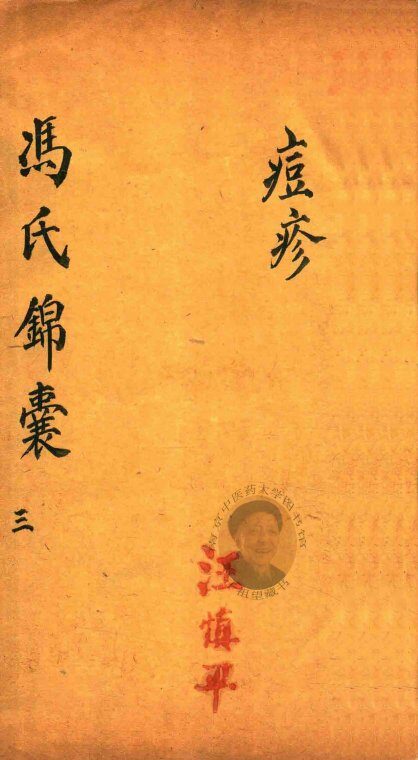 痘疹
馮氏錦囊
三
南京中医药大学图书馆
祖望藏书
汪慎